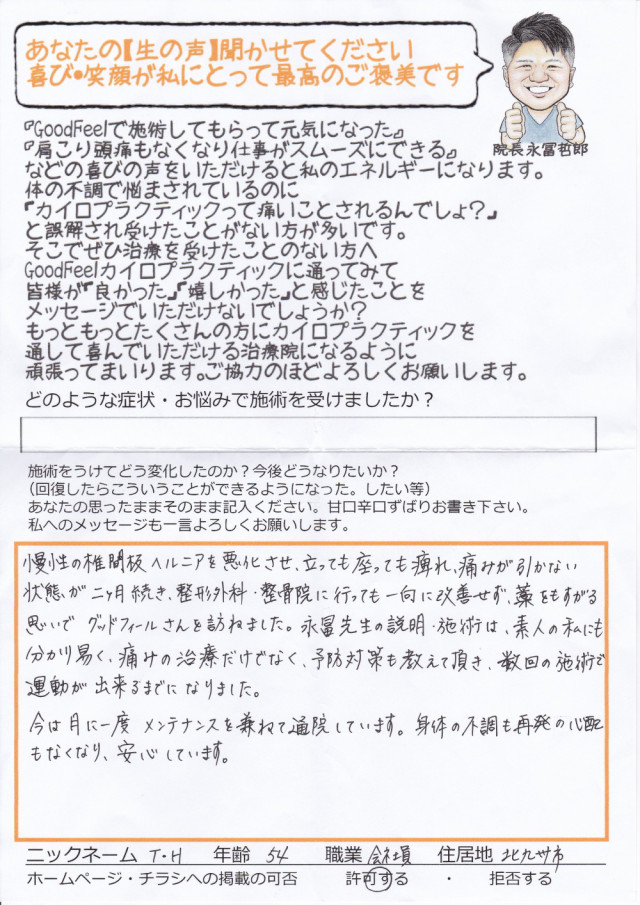 あなたの【生の声】聞かせてください
喜び●笑顔が私にとって最高のご褒美です
院長永冨哲郎
『GoodFeelで施術してもらって元気になった』
『肩こり頭痛もなくなり仕事がスムーズにできる』
などの喜びの声をいただけると私のエネルギーになります。
体の不調で悩まされているのに
「カイロプラクティックって痛いことされるんでしょ？」
と誤解され受けたことがない方が多いです。
そこでぜひ治療を受けたことのない方へ
GoodFeelカイロプラクティックに通ってみて
皆様が「良かった」「嬉しかった」と感じたことを
メッセージでいただけないでしょうか？
もっともっとたくさんの方にカイロプラクティックを
通して喜んでいただける治療院になるように
頑張ってまいります。ご協力のほどよろしくお願いします。
どのような症状・お悩みで施術を受けましたか？
施術をうけてどう変化したのか？今後どうなりたいか？
（回復したらこういうことができるようになった。したい等）
あなたの思ったままそのまま記入ください。甘口辛口ずばりお書き下さい。
私へのメッセージも一言よろしくお願いします。
慢性の椎間板ヘルニアを悪化させ、立っても座っても痺れ、痛みが引かない
状態が二ヶ月続き、整形外科・整骨院に行っても一向に改善せず、藁をもすがる
思いで グッドフィールさんを訪ねました。永冨先生の説明・施術は、素人の私にも
分かり易く、痛みの治療だけでなく、予防対策も教えて頂き、数回の施術で
運動が出来るまでになりました。
今は月に一度 メンテナンスを兼ねて通院しています。身体の不調も再発の心配
もなくなり、安心しています。
ニックネーム T・H 年齢 54 職業 会社員 住居地 北九州市
ホームページ・チラシへの掲載の可否 許可する ・ 拒否する